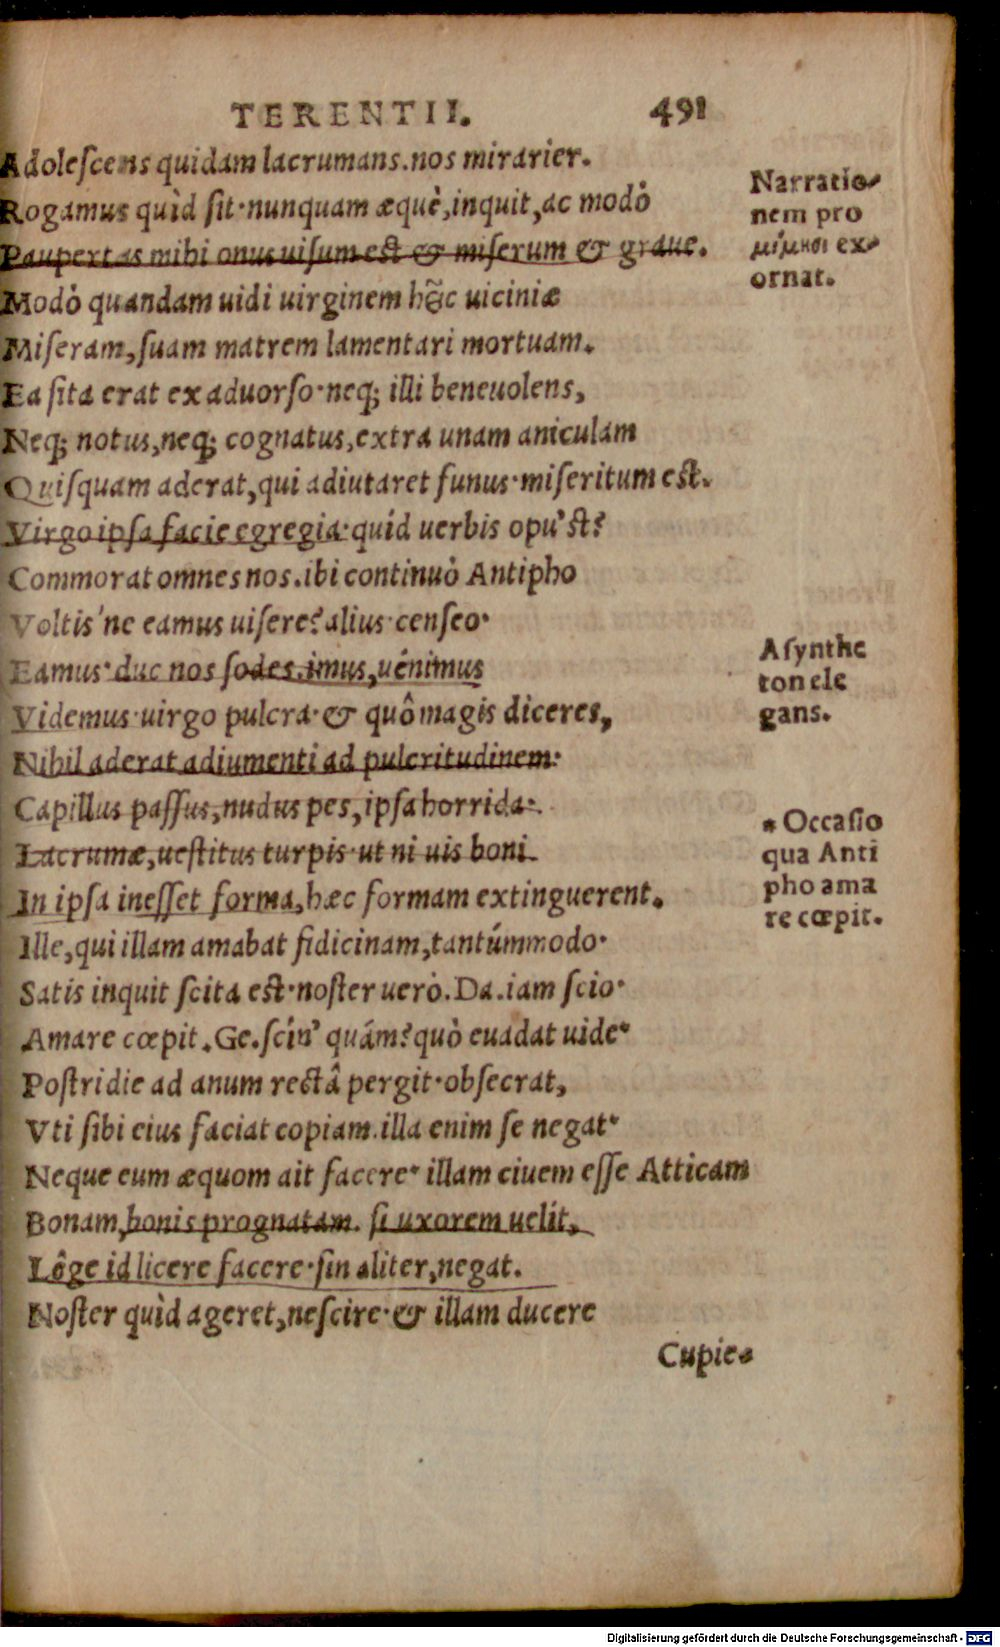 TERENTII. 491
Adoleſcens quidam lacrumans.nos mirarier.
Rogamus quìd ſit·nunquam æquè,inquit,ac modò
Paupertas mihi onus uiſum est & miſerum & graue.
Modò quandam uidi uirginem hĉc uiciniæ
Miſeram,ſuam matrem lamentari mortuam.
Ea ſita erat ex aduorſo·neq; illi beneuolens,
Neq; notus,neq; cognatus,extra unam aniculam
Quiſquam aderat,qui adiutaret funus·miſeritum est.
Virgo ipſa facie egregia·quíd uerbis opu'st?
Commorat omnes nos.ibi continuò Antipho
Voltis'ne eamus uiſere?alius·cenſeo·
Eamus·duc nos ſodes.imus,uénimus
Videmus·uirgo pulcra·& quô magis diceres,
Nihil aderat adiumenti ad pulcritudinem·
Capillus paſſus,nudus pes,ipſa horrida·
Lacrumæ,ueſtitus turpis·ut ni uis boni
In ipſa ineſſet forma,hæc formam extinguerent.
Ille,qui illam amabat fidicinam,tantúmmodo·
Satis inquit ſcita est·noſter uerò.Da.iam ſcio·
Amare cœpit.Ge.ſcín' quám?quò euadat uide·
Poſtridie ad anum rectâ pergit·obſecrat,
Vti ſibi eius faciat copiam.illa enim ſe negat·
Neque eum æquom ait facere·illam ciuem eſſe Atticam
Bonam,bonis prognatam. ſi uxorem uelit,
Lêge id licere facere·ſin aliter,negat.
Noſter quìd ageret,neſcire·& illam ducere
Cupie-
Narratio-
nem pro
μίμησι ex-
ornat.
Aſynthe
ton ele
gans.
* Occaſio
qua Anti
pho ama
re cœpit.
Digitalisierung gefördert durch die Deutsche Forschungsgemeinschaft - DFG